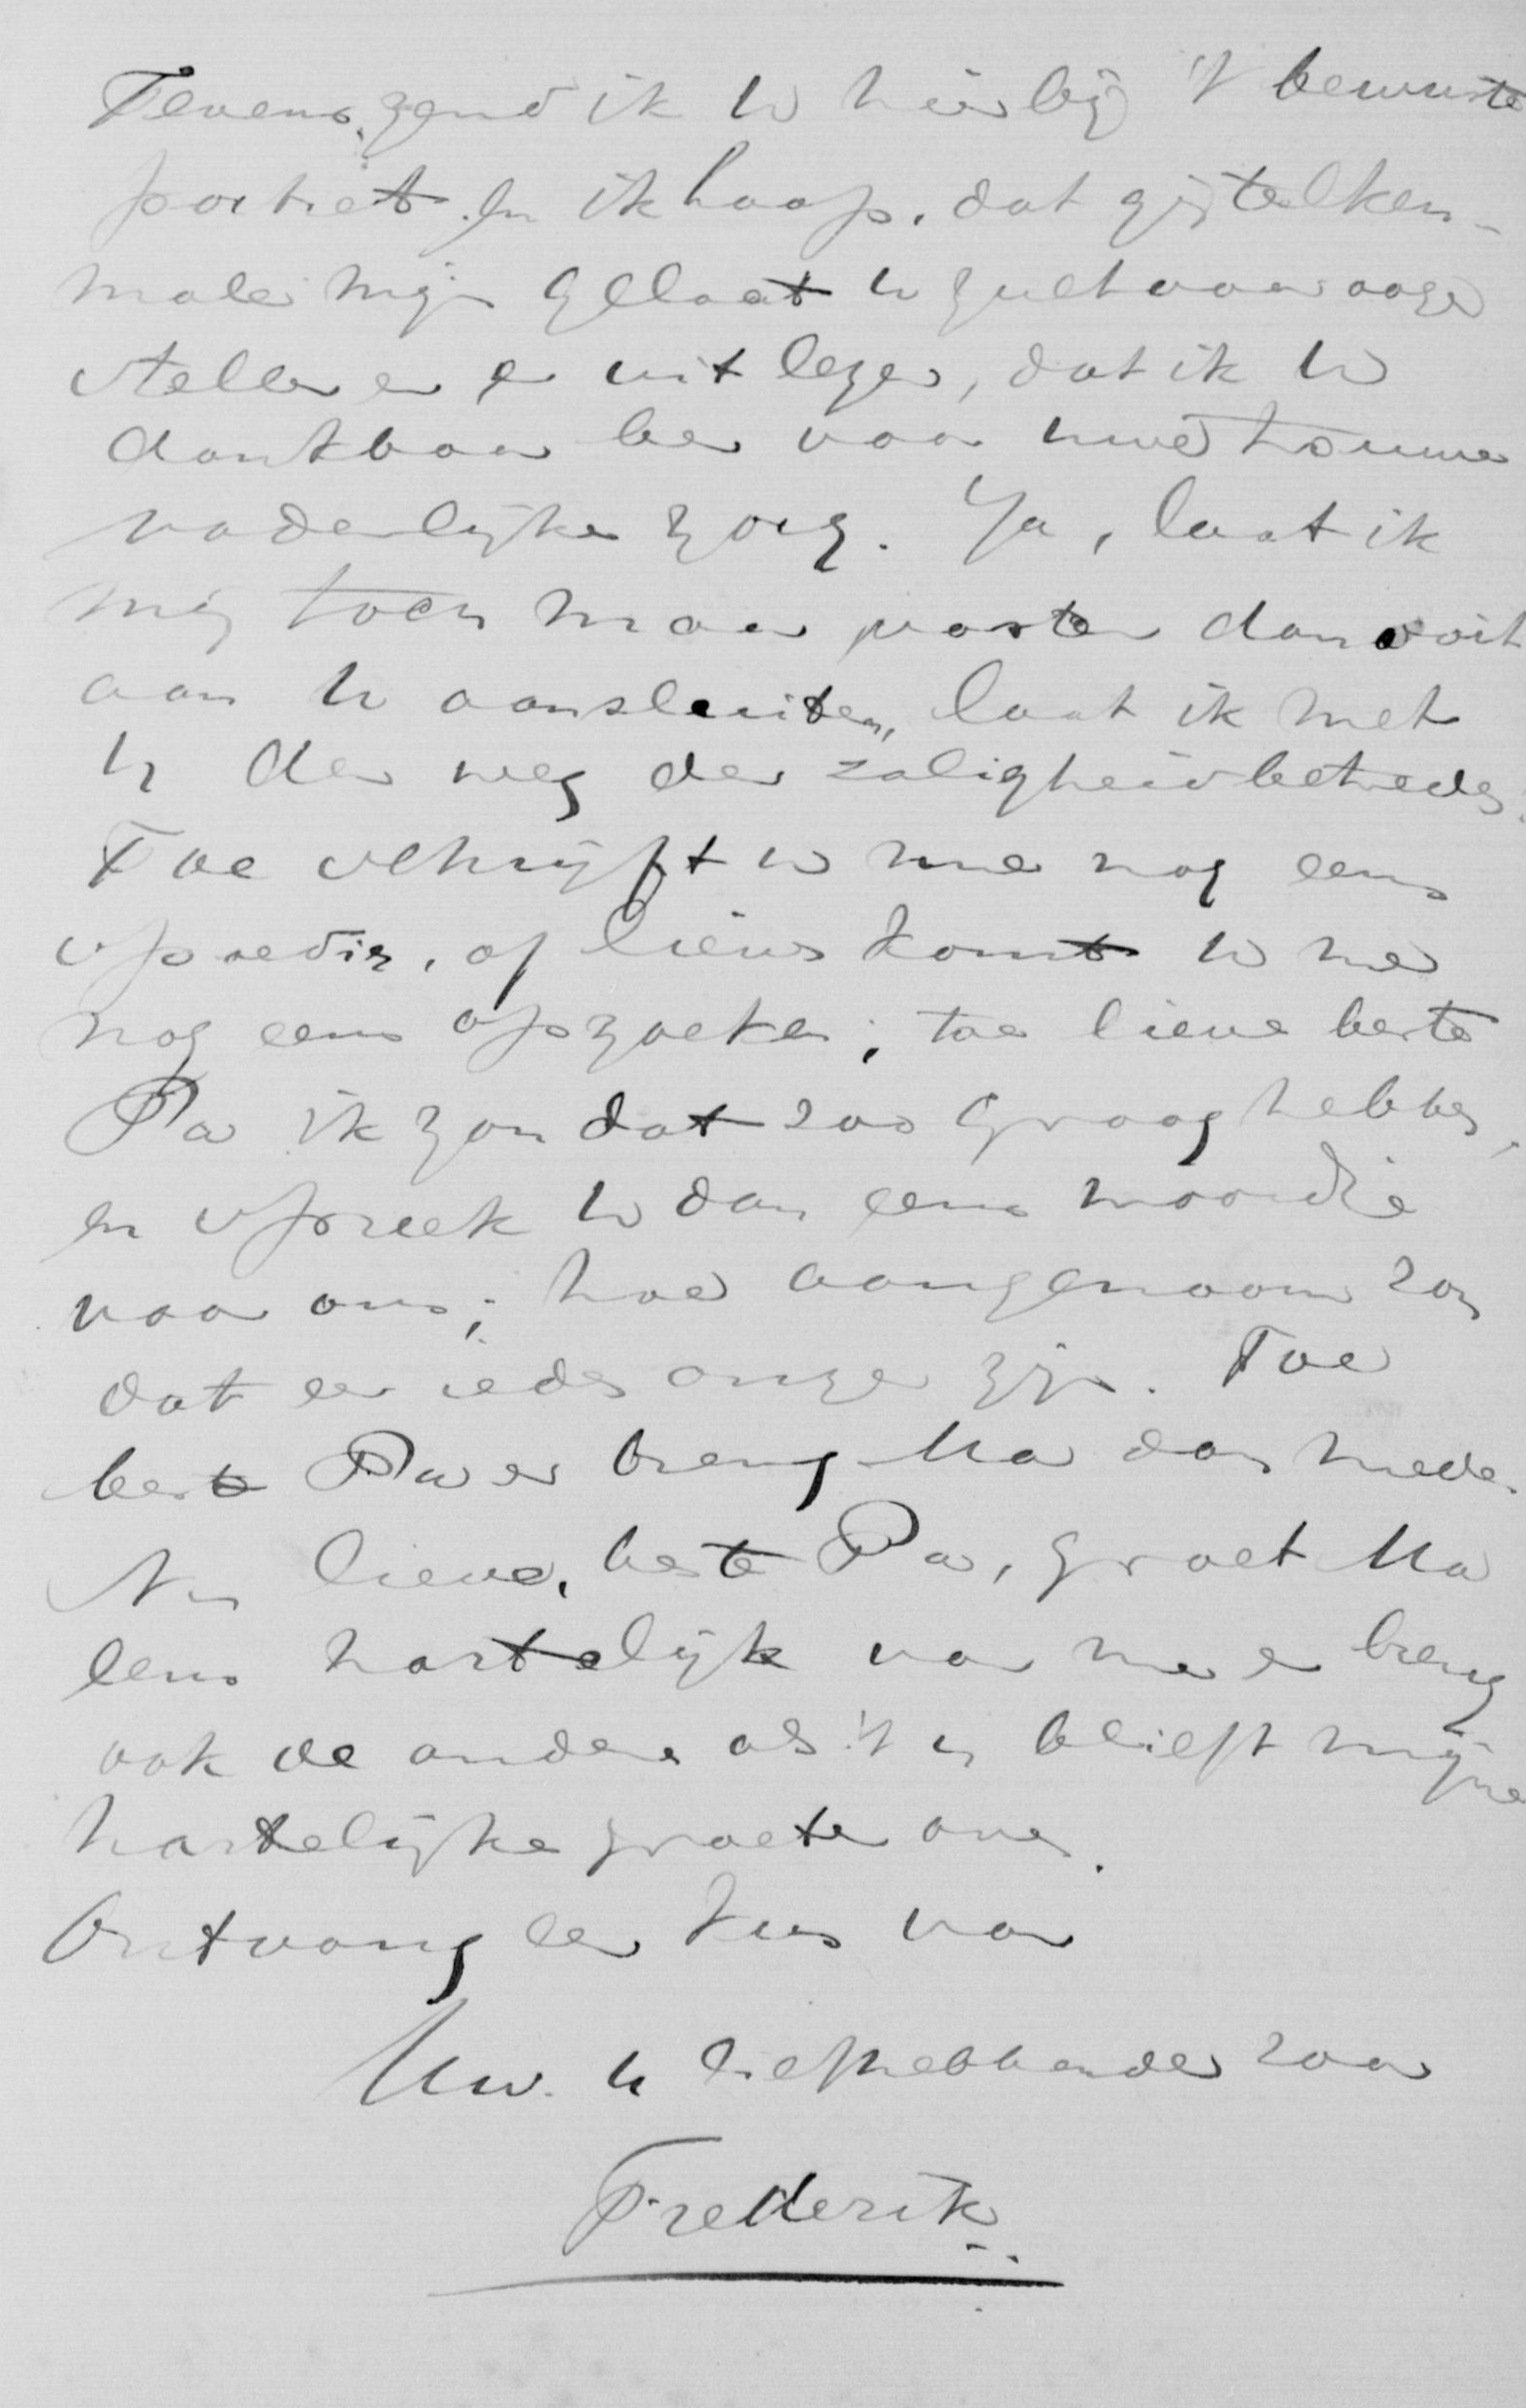 Tevens zend ik U hierbij 't bewuste
portret en ik hoop, dat gij telken-
male mijn gelaat U zult voor oogen
stellen en er uit lezen, dat ik U
dankbaar ben voor uwe trouwe
vaderlijke zorg. Ja, laat ik
mij toch maar vaster dan ooit
aan U aansluiten, laat ik met
U den weg der zaligheid betreden.
Toe schrijft U me nog eens
spoedig, of liever komt U me
nog eens opzoeken; toe lieve beste
Pa ik zou dat zoo graag hebben,
en spreek U dan eens
voor ons; hoe aangenaam zou
dat een ieder onzer zijn. Toe
beste Pa en breng Ma dan mede.
Nu lieve, beste Pa, groet Ma
eens hartelijk van me en breng
ook de andere als 't U blieft mijne
hartelijke groeten over.
Ontvang een kus van
Uw U liefhebbende zoon
Frederik